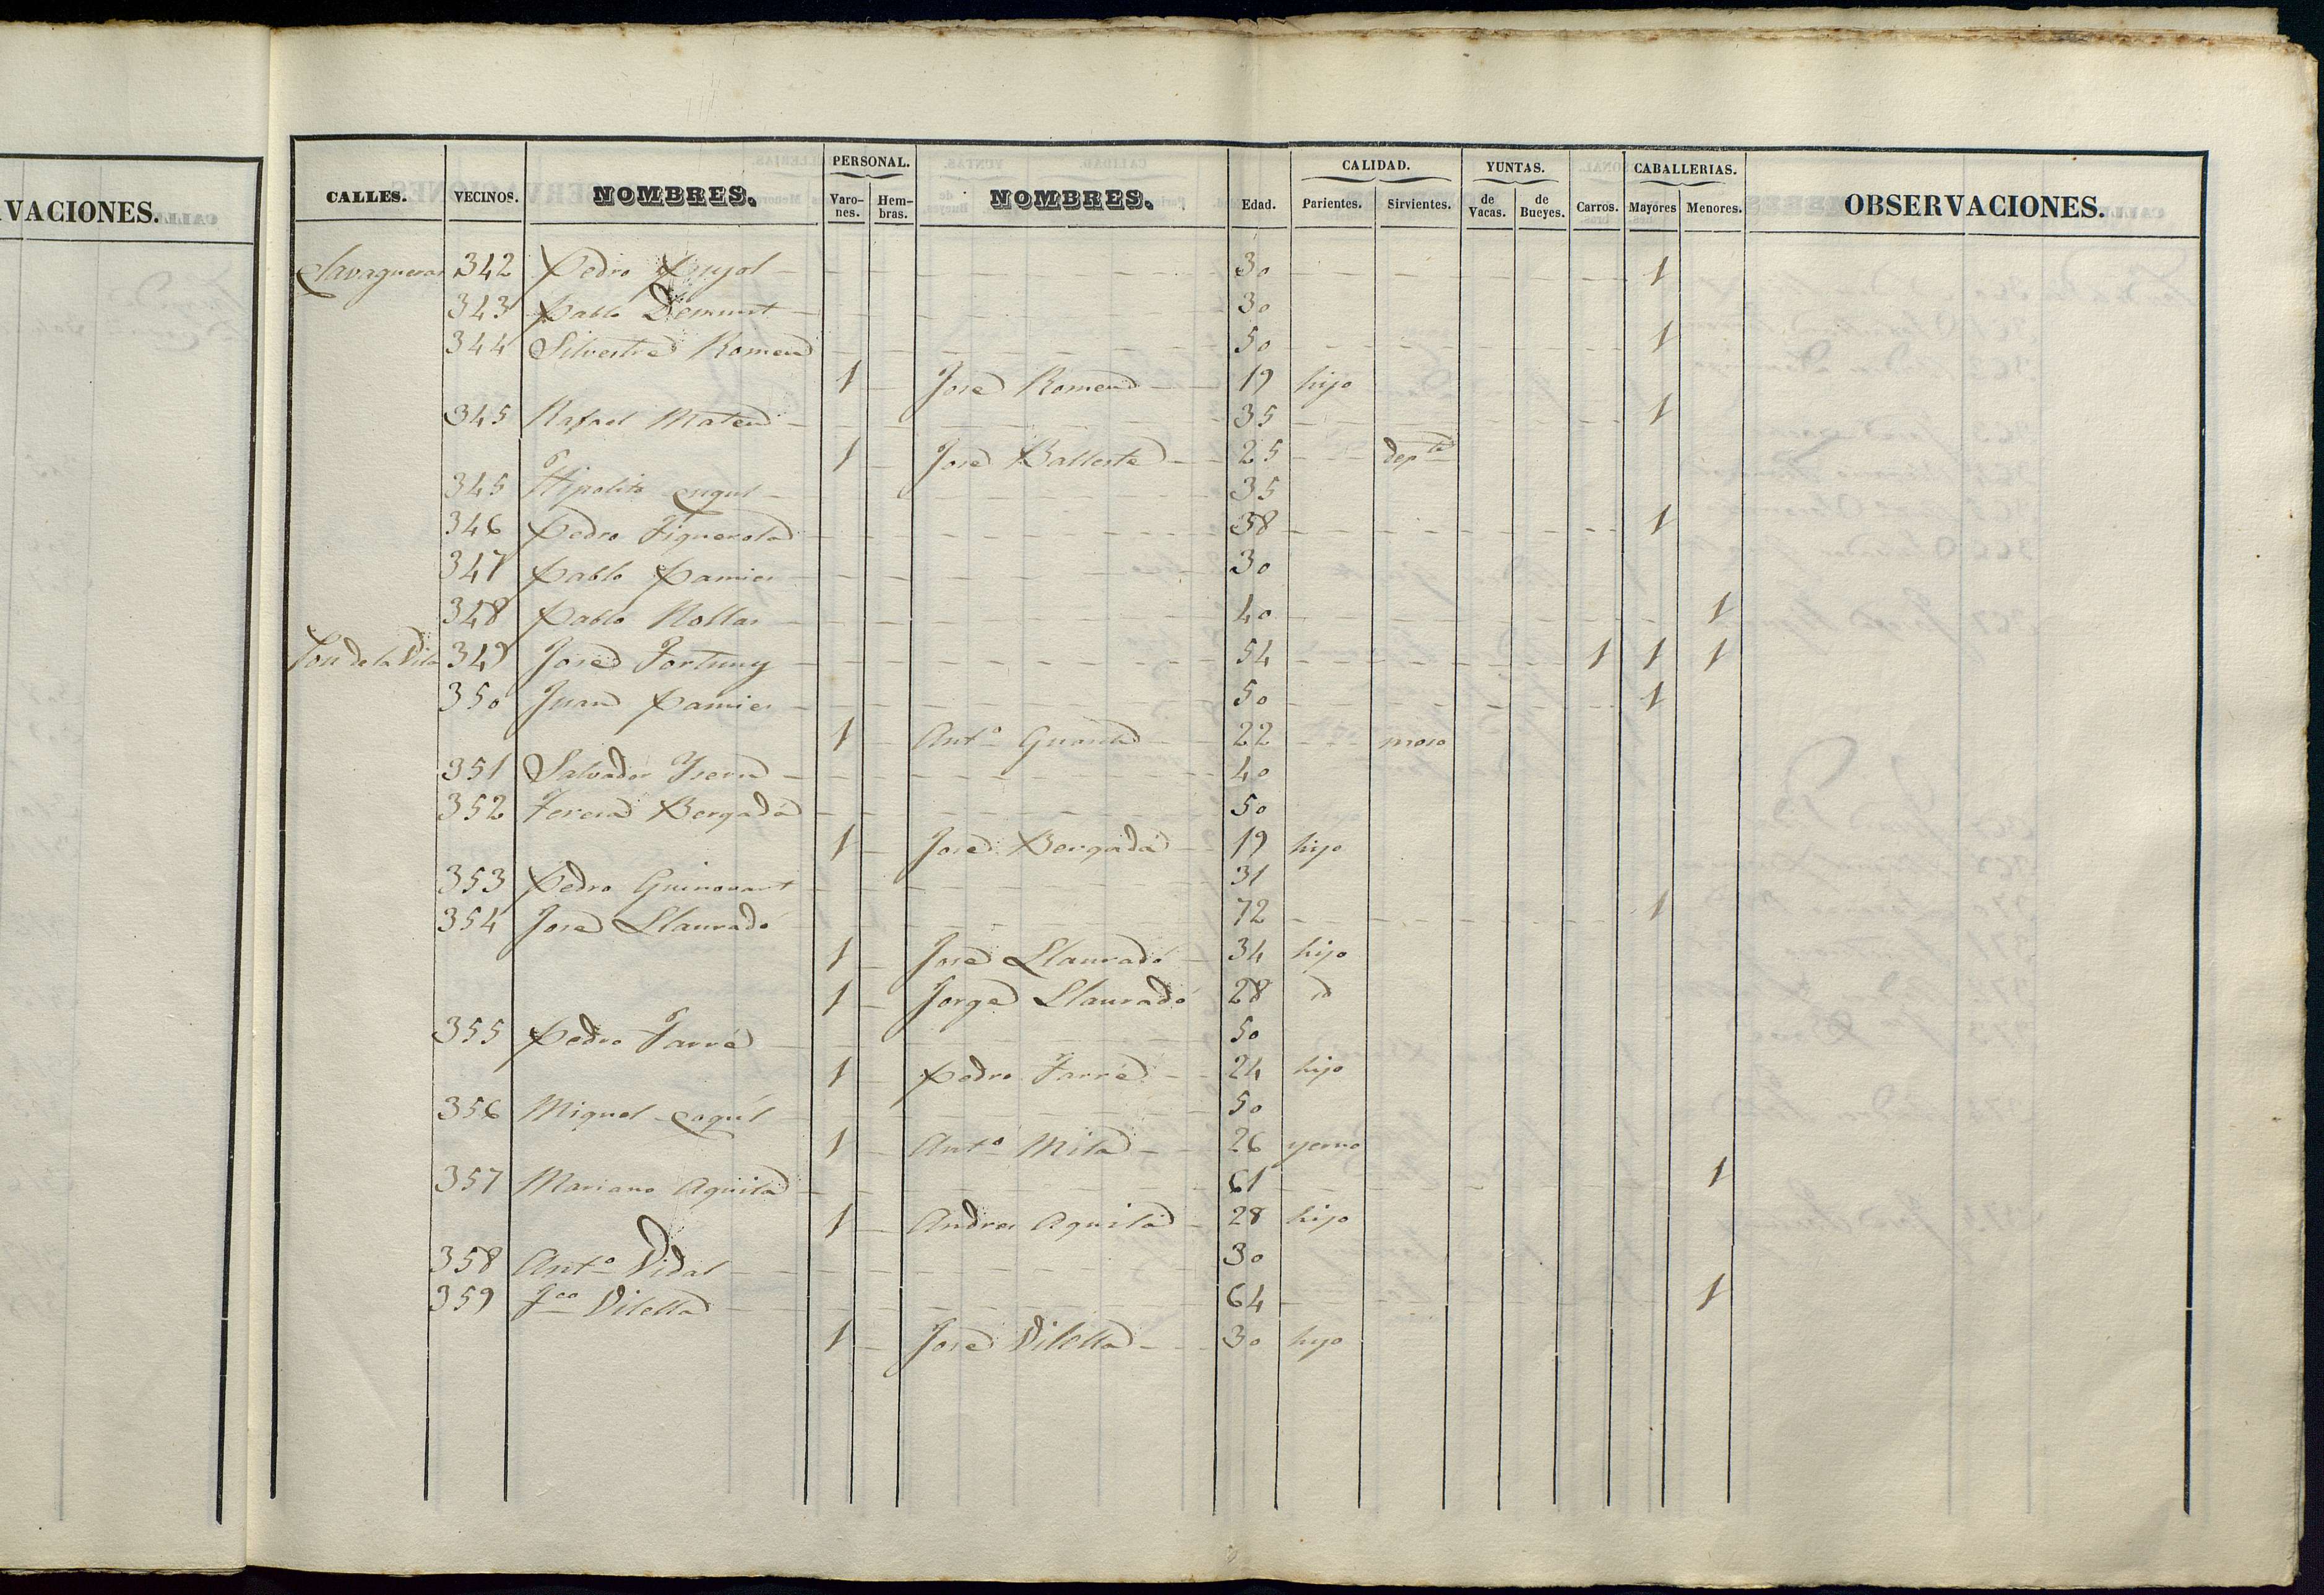 VACIONES.
PERSONAL. CALIDAD. YUNTAS. CABALLERIAS.
CALLES. VECINOS. NOMBRES. Varones. Hembras. NOMBRES. Edad. Parientes. Sirvientes. de Vacas. de Bueyes. Carros. Mayores Menores. OBSERVACIONES.
342 Pedro Pujol 30 1
343 Pablo 30
344 Silvestre Romeu 50 1
1 José Romeu 19 hijo
345 Rafael Mateu 35 1
1 José Ballesté 25 depte
345 Hipolito 35
346 Pedro Figuerola 38 1
347 Pablo Pamies 30
348 Pablo Nollas 40 1
de la Vila 349 José Fortuny 54 1 1 1
350 Juan Pamies 50 1
1 Anto 22 moso
351 Salvador 40
352 Teresa Bergadá 50
1 José Bergadá 19 hijo
353 Pedro Guinovart 31
354 José Llauradó 72 1
1 José Llauradó 34 hijo
1 Jorge Llauradó 28 id
355 Pedro Farré 50
1 Pedro Farré 24 hijo
356 Miguel 50
1 Anto Milá 26 yerno
357 Mariano Aguilá 61 1
1 Andres Aguilá 28 hijo
358 Anto Vidal 30
359 Fco Vilella 64 1
1 José Vilella 30 hijo